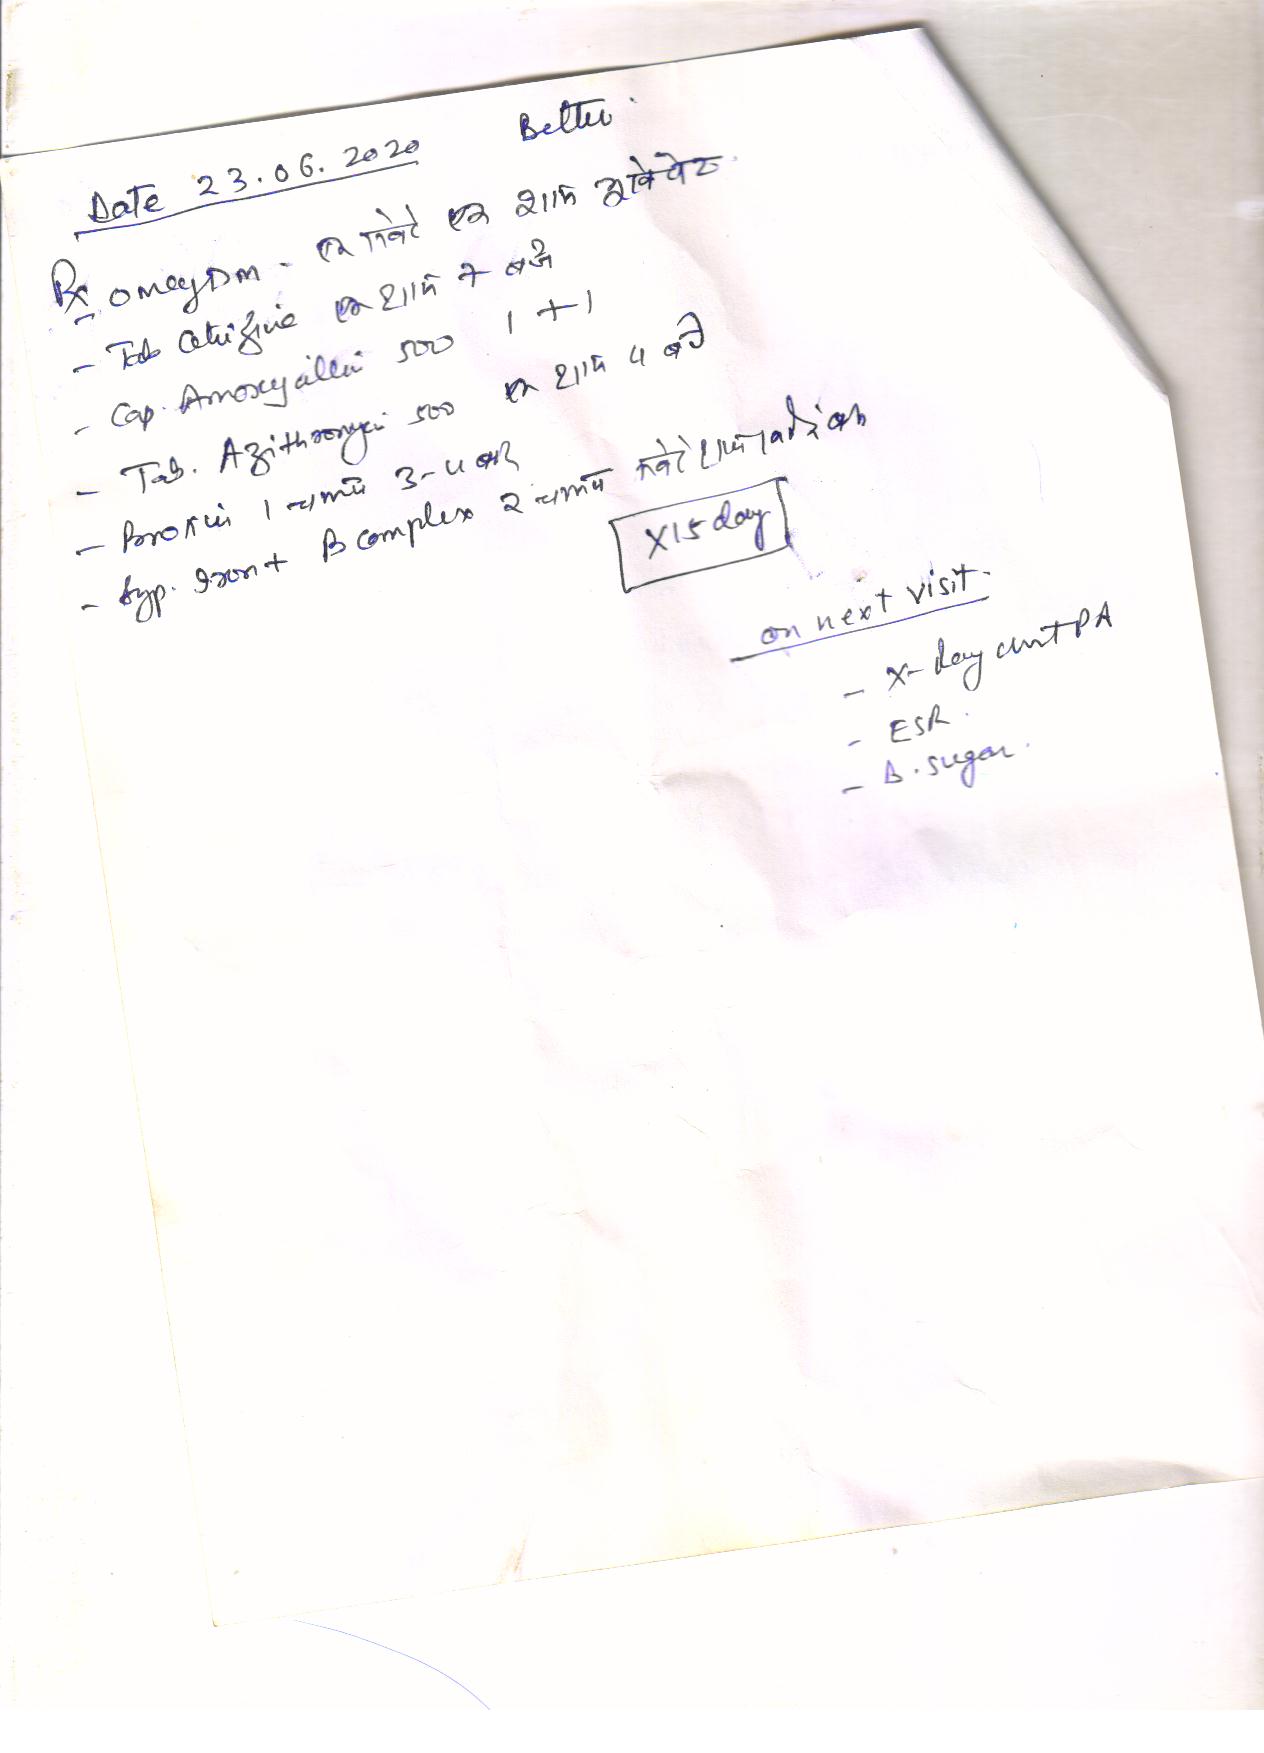 Date 23.06.2020 Better.
Rx omeyDm - एक सवेरे एक शाम
- Tab Cetrizine एक शाम 7 बजे
- Cap. Amoxycillin 500 1+1
- Tab. Azithromycin 500 एक शाम 4 बजे
- 1 चम्मच 3-4 बार
- Syp. Iron + B complex 2 चम्मच सवेरे शाम
X15 day
on next visit.
- X-day chest PA
- ESR.
- B. sugar.